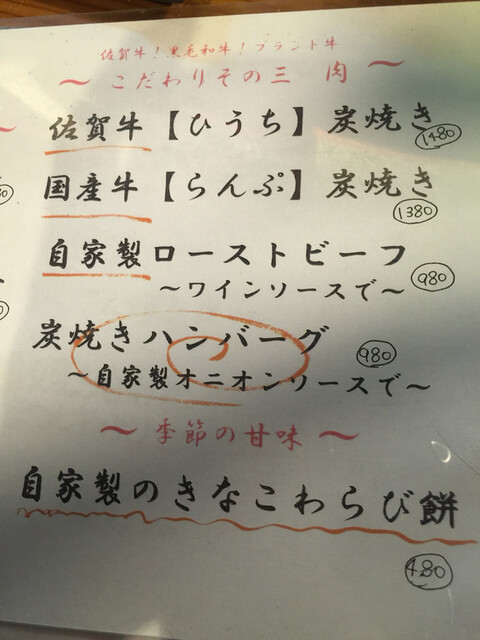 佐賀牛！黒毛和牛！ブランド牛
～こだわりその三 肉～
佐賀牛【ひうち】炭焼き
1480
国産牛【らんぷ】炭焼き
1380
自家製ローストビーフ
～ワインソースで～
980
炭焼きハンバーグ
980
～自家製オニオンソースで～
～季節の甘味～
自家製のきなこわらび餅
480